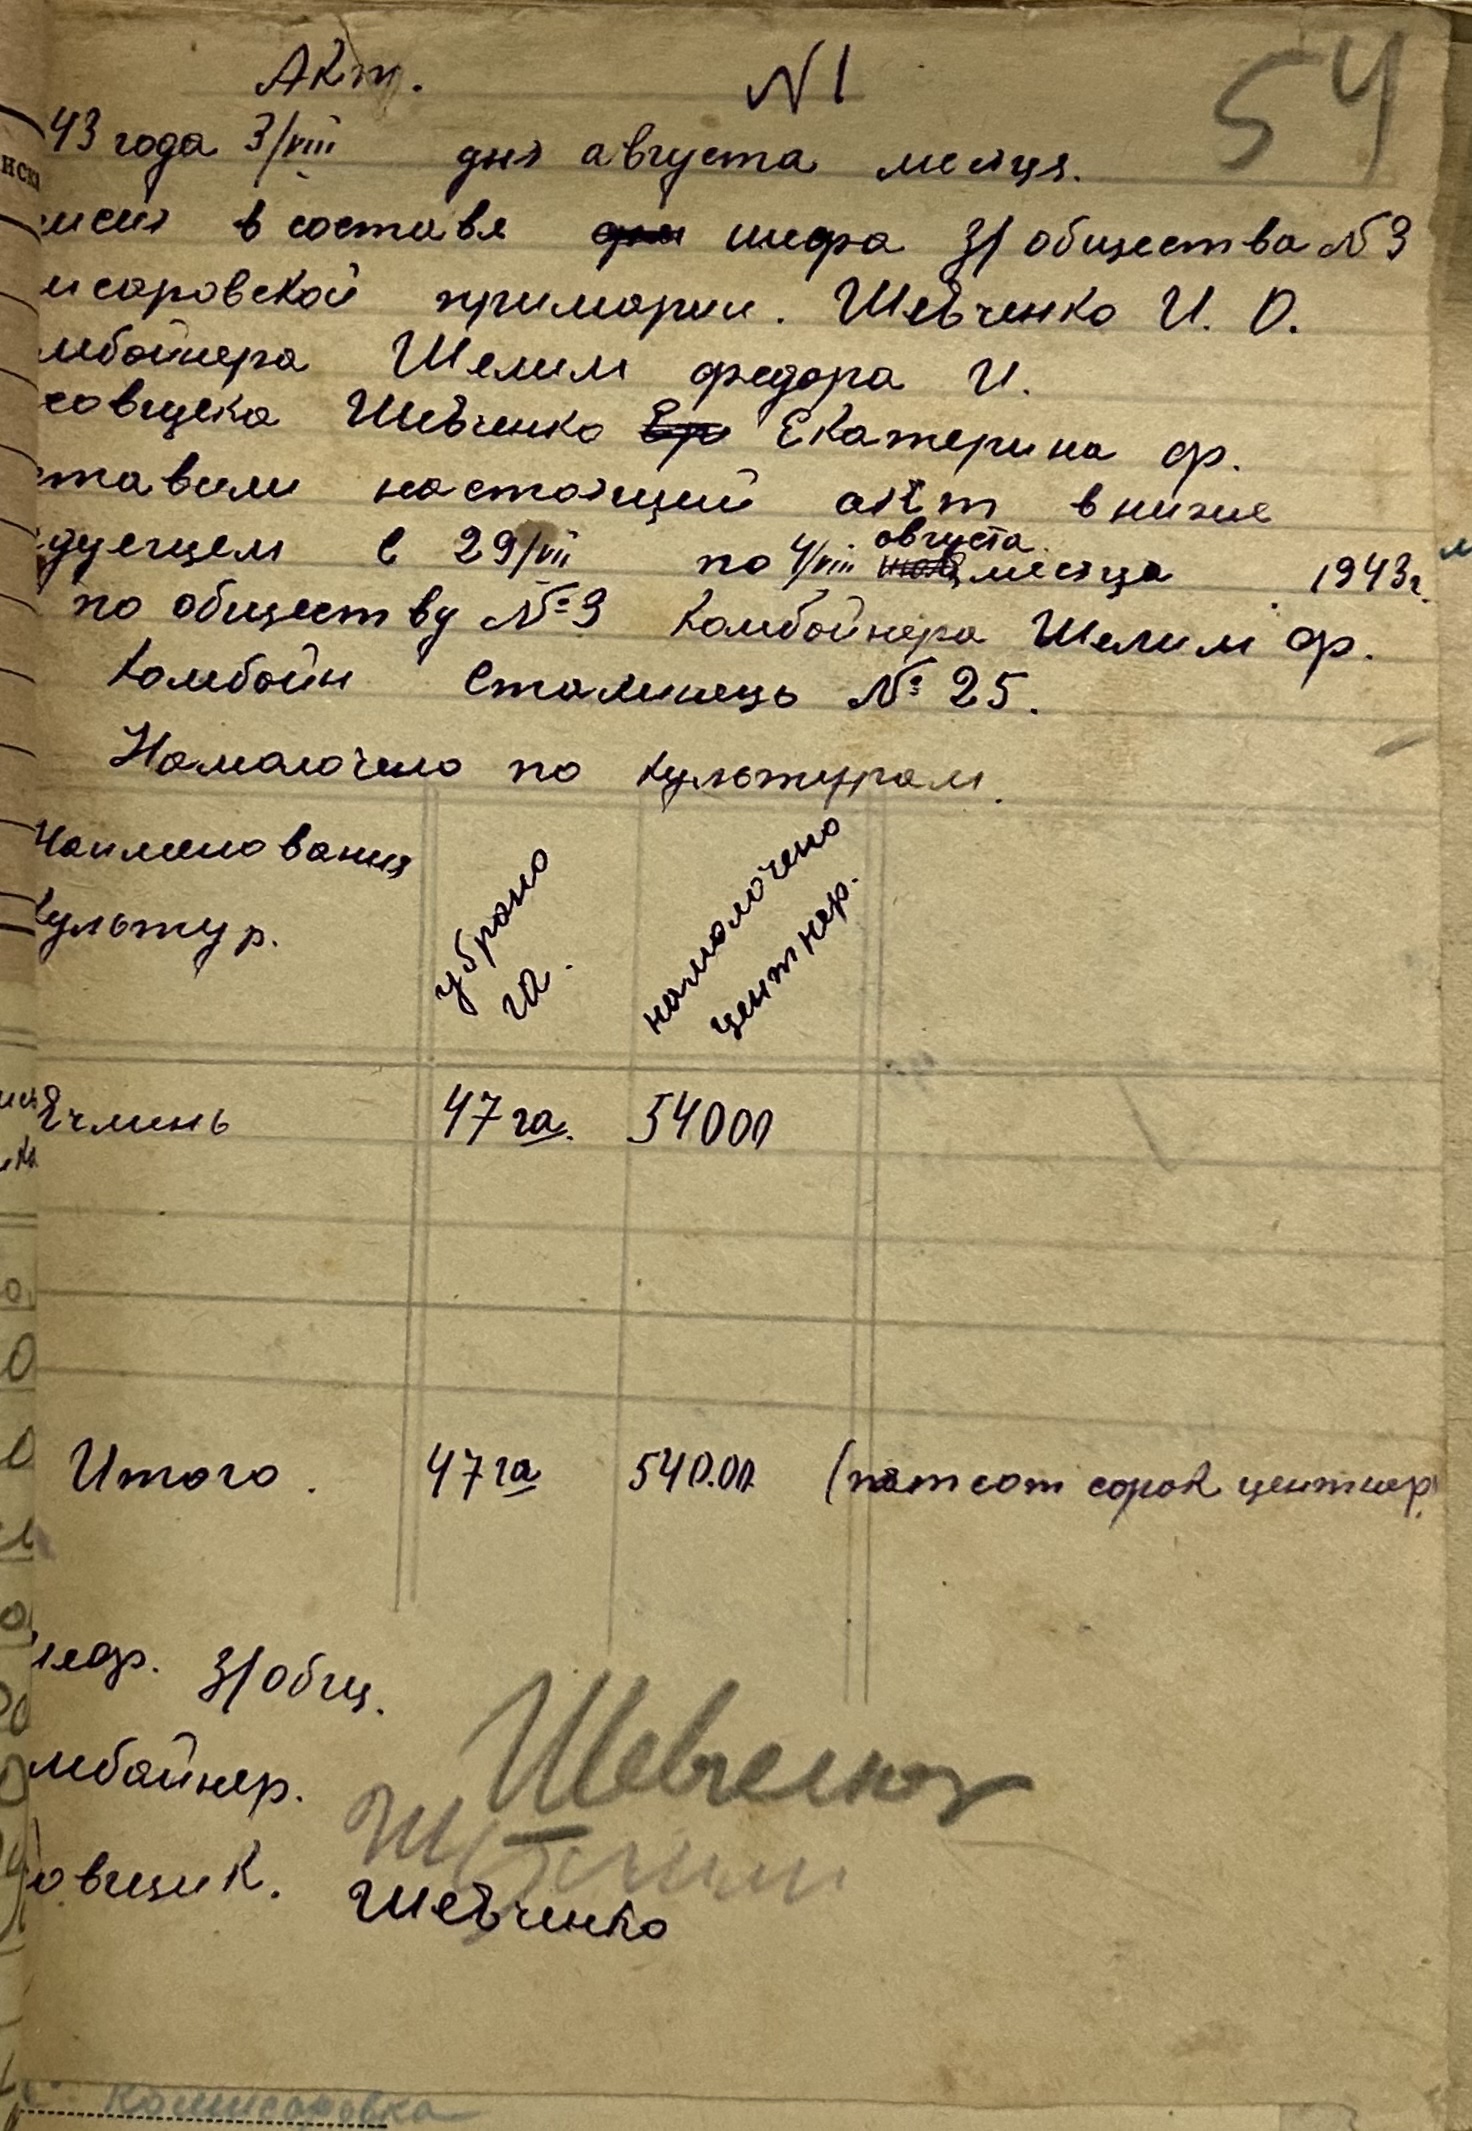 54
Акт. N1
43 года 3/VIII дня августа месяца.
мсия в составя шефа З/общества №3
исаровской примарии. Шевченко И. О.
мбойнера Шелим федора И.
совщека Шевченко Екатерина ф.
ставили настоящий акт в ниже
дующем с 29/VII по 4/VIII августа месяца 1943г.
по обществу №3 Комбойнера Шелим ф.
Комбойн Сталинець № 25.
Намолочено по культурам.
Наименования культур.
убрано га.
намолочено центнер.
Ячминь 47 га. 54000
Итого. 47 га 540.00 (пятсот сорок центнер
шеф. З/общ. Шевченко
мбайнер.
овщик. Шевченко
Комисаровка